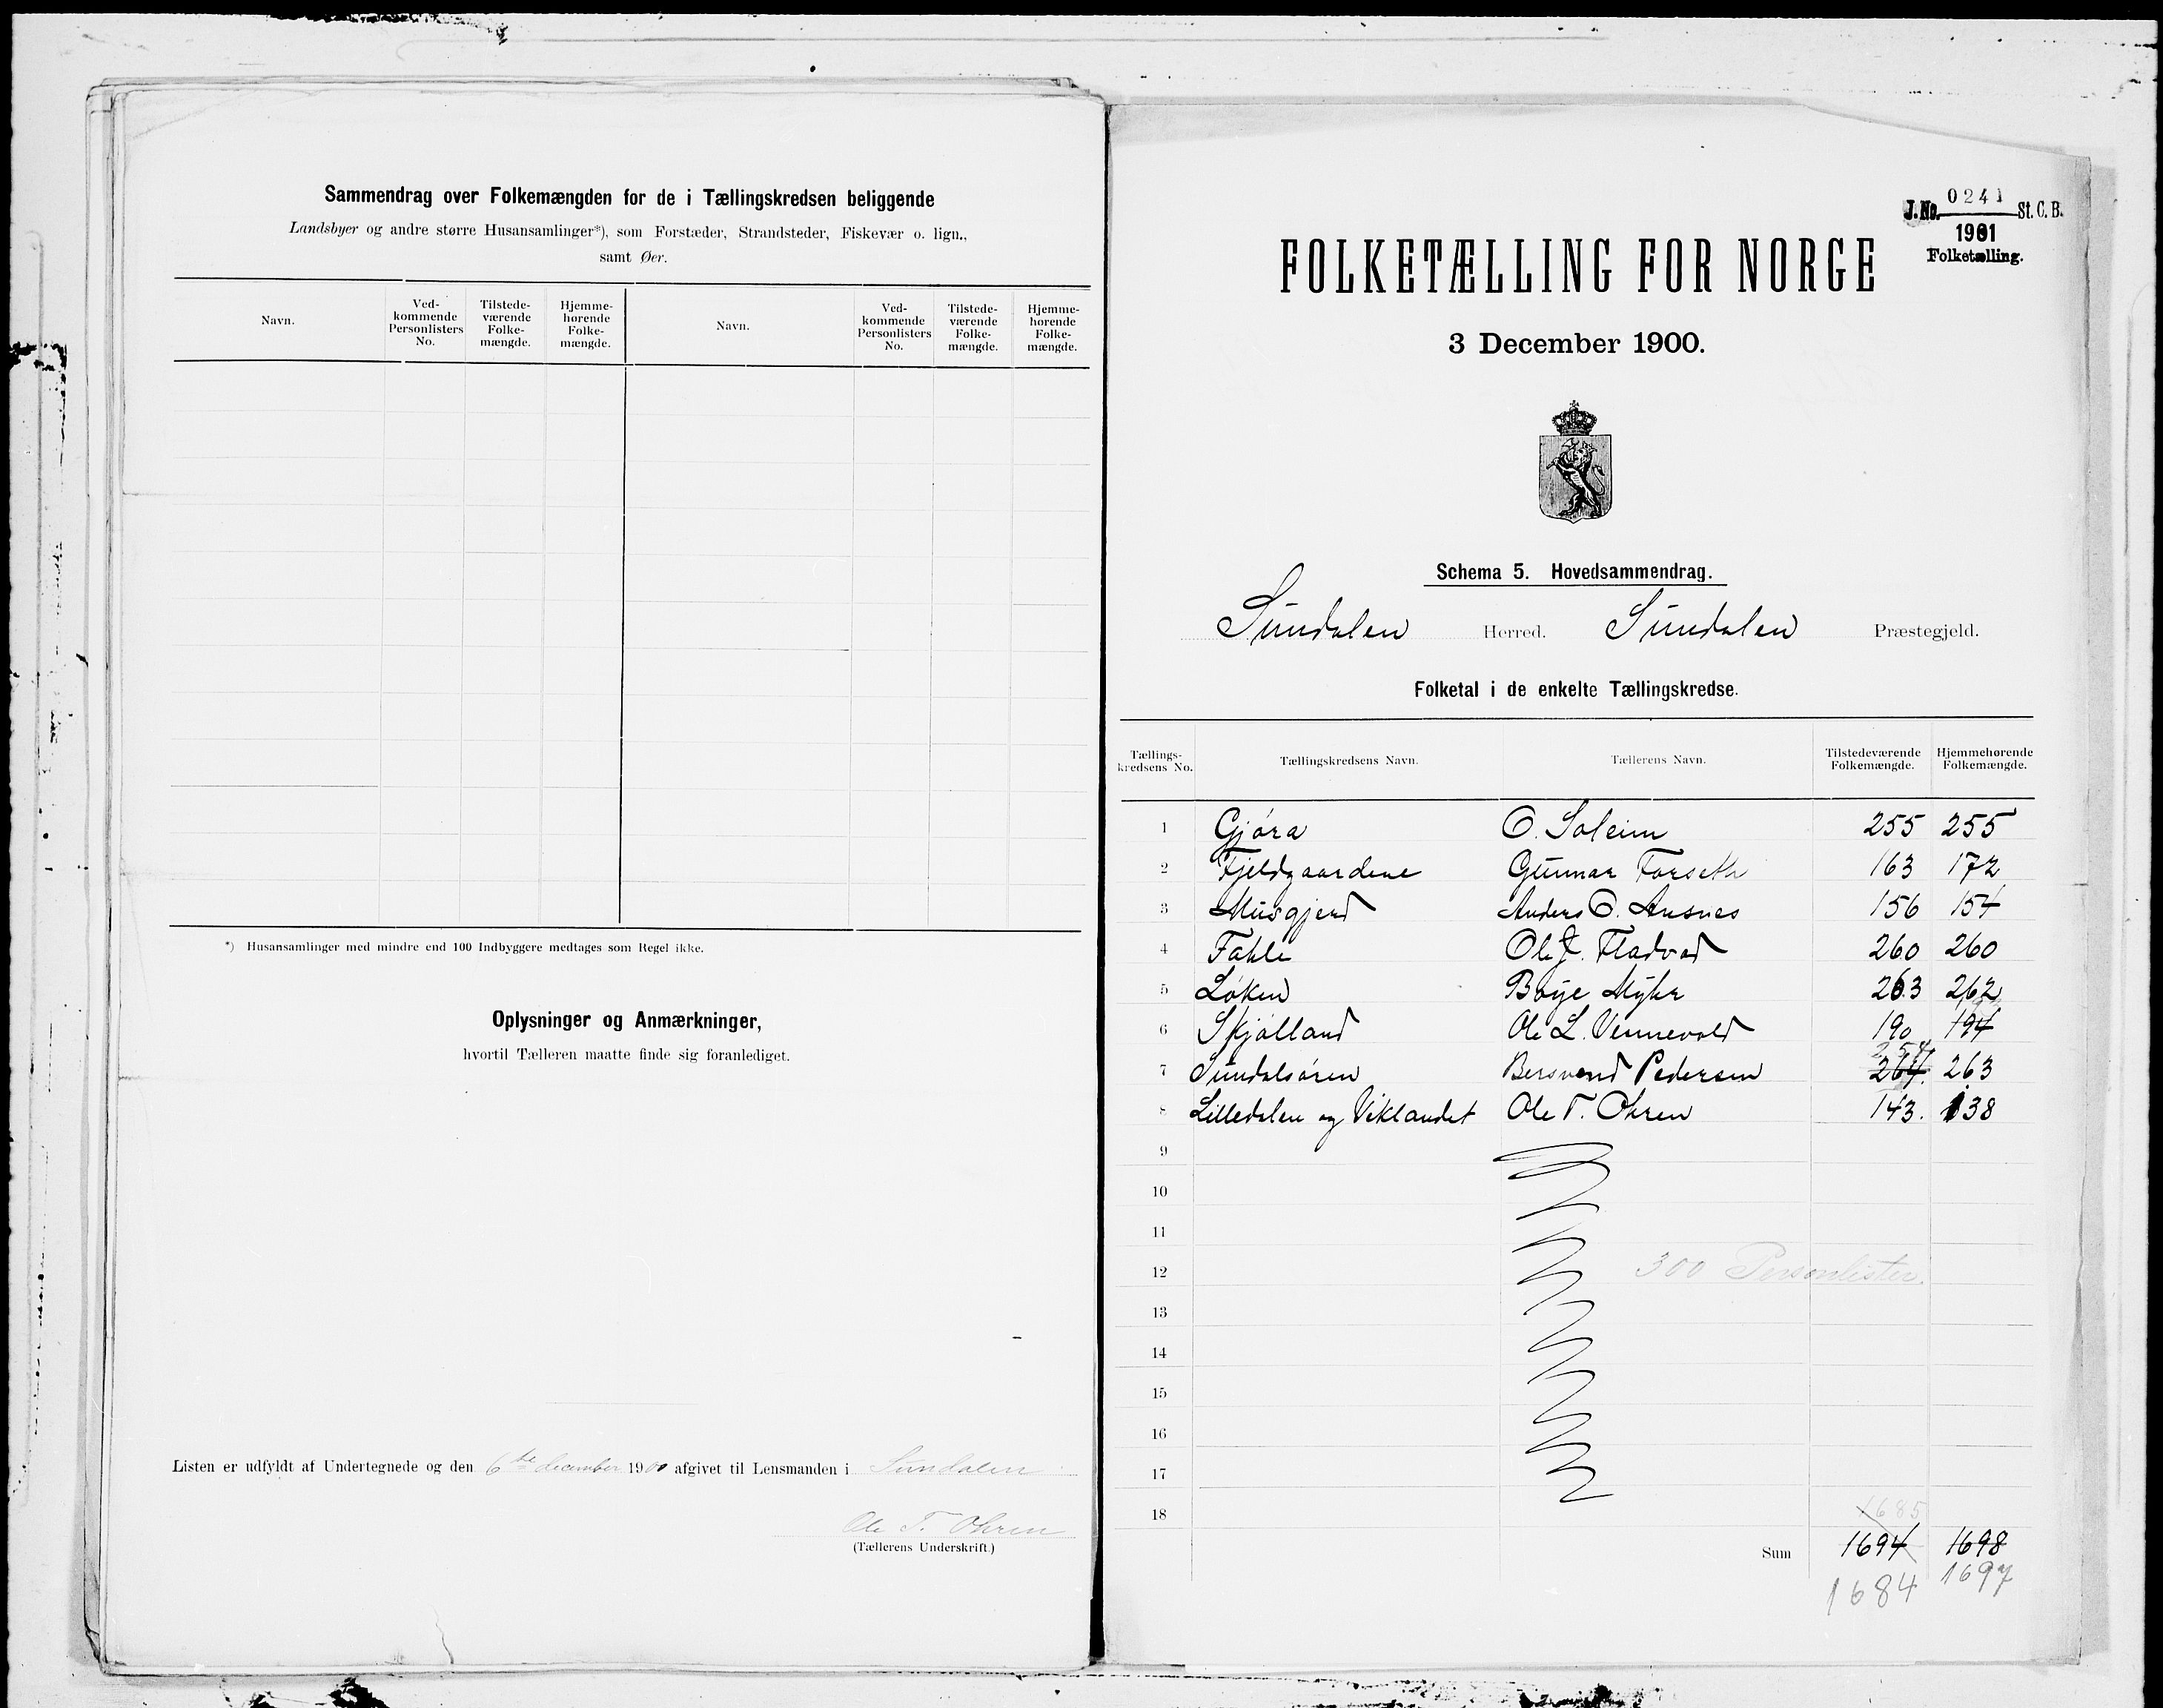 Sammendrag over Folkemængden for de i Tællingskredsen beliggende
Landsbyer og andre større Husansamlinger*), som Forstæder, Strandsteder, Fiskevær o. lign.,
samt Øer.
Navn. Ved-kommende Personlisters No. Tilstede-værende Folke-mængde. Hjemme-hørende Folke-mængde. Navn. Ved-kommende Personlisters No. Tilstede-værende Folke-mængde. Hjemme-hørende Folke-mængde.
*) Husansamlinger med mindre end 100 Indbyggere medtages som Regel ikke.
Oplysninger og Anmærkninger,
hvortil Tælleren maatte finde sig foranlediget.
Listen er udfyldt af Undertegnede og den 6te december 1900 afgivet til Lensmanden i Sundalen
Ole T. Ohren
(Tællerens Underskrift.)
J. No. 0241 St. C. B.
1901
Folketælling.
FOLKETÆLLING FOR NORGE
3 December 1900.
Schema 5. Hovedsammendrag.
Sundalen Herred. Sundalen Præstegjeld.
Folketal i de enkelte Tællingskredse.
Tællings-kredsens No. Tællingskredsens Navn. Tællerens Navn. Tilstedeværende Folkemængde. Hjemmehørende Folkemængde.
1 Gjöra O. Soleim 255 255
2 Fjeldgaardene Gunnar Forseth 163 172
3 Musgjerd Anders O. 156 154
4 Fahle Ole J. Fladvad 260 260
5 Löken Böye Myhr 263 262
6 Skjölland Ole L. Vennevold 190 194
254
7 Sundalsören Bersvend Pedersen 264. 263
8 Lilledalen og Viklandet Ole T. Ohren 143. 138
9
10
11
12 300 Personlister.
13
14
15
16
17
18 1685
Sum 1694 1698
1684 1697